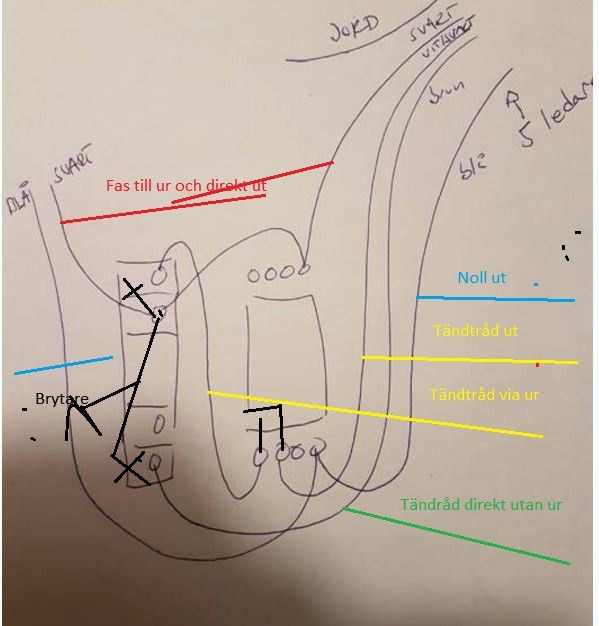 JORD
SVART
VIT/SVART
brun
blå
5 ledare
BLÅ
SVART
Fas till ur och direkt ut
Noll ut
Tändtråd ut
Tändtråd via ur
Brytare
Tändråd direkt utan ur